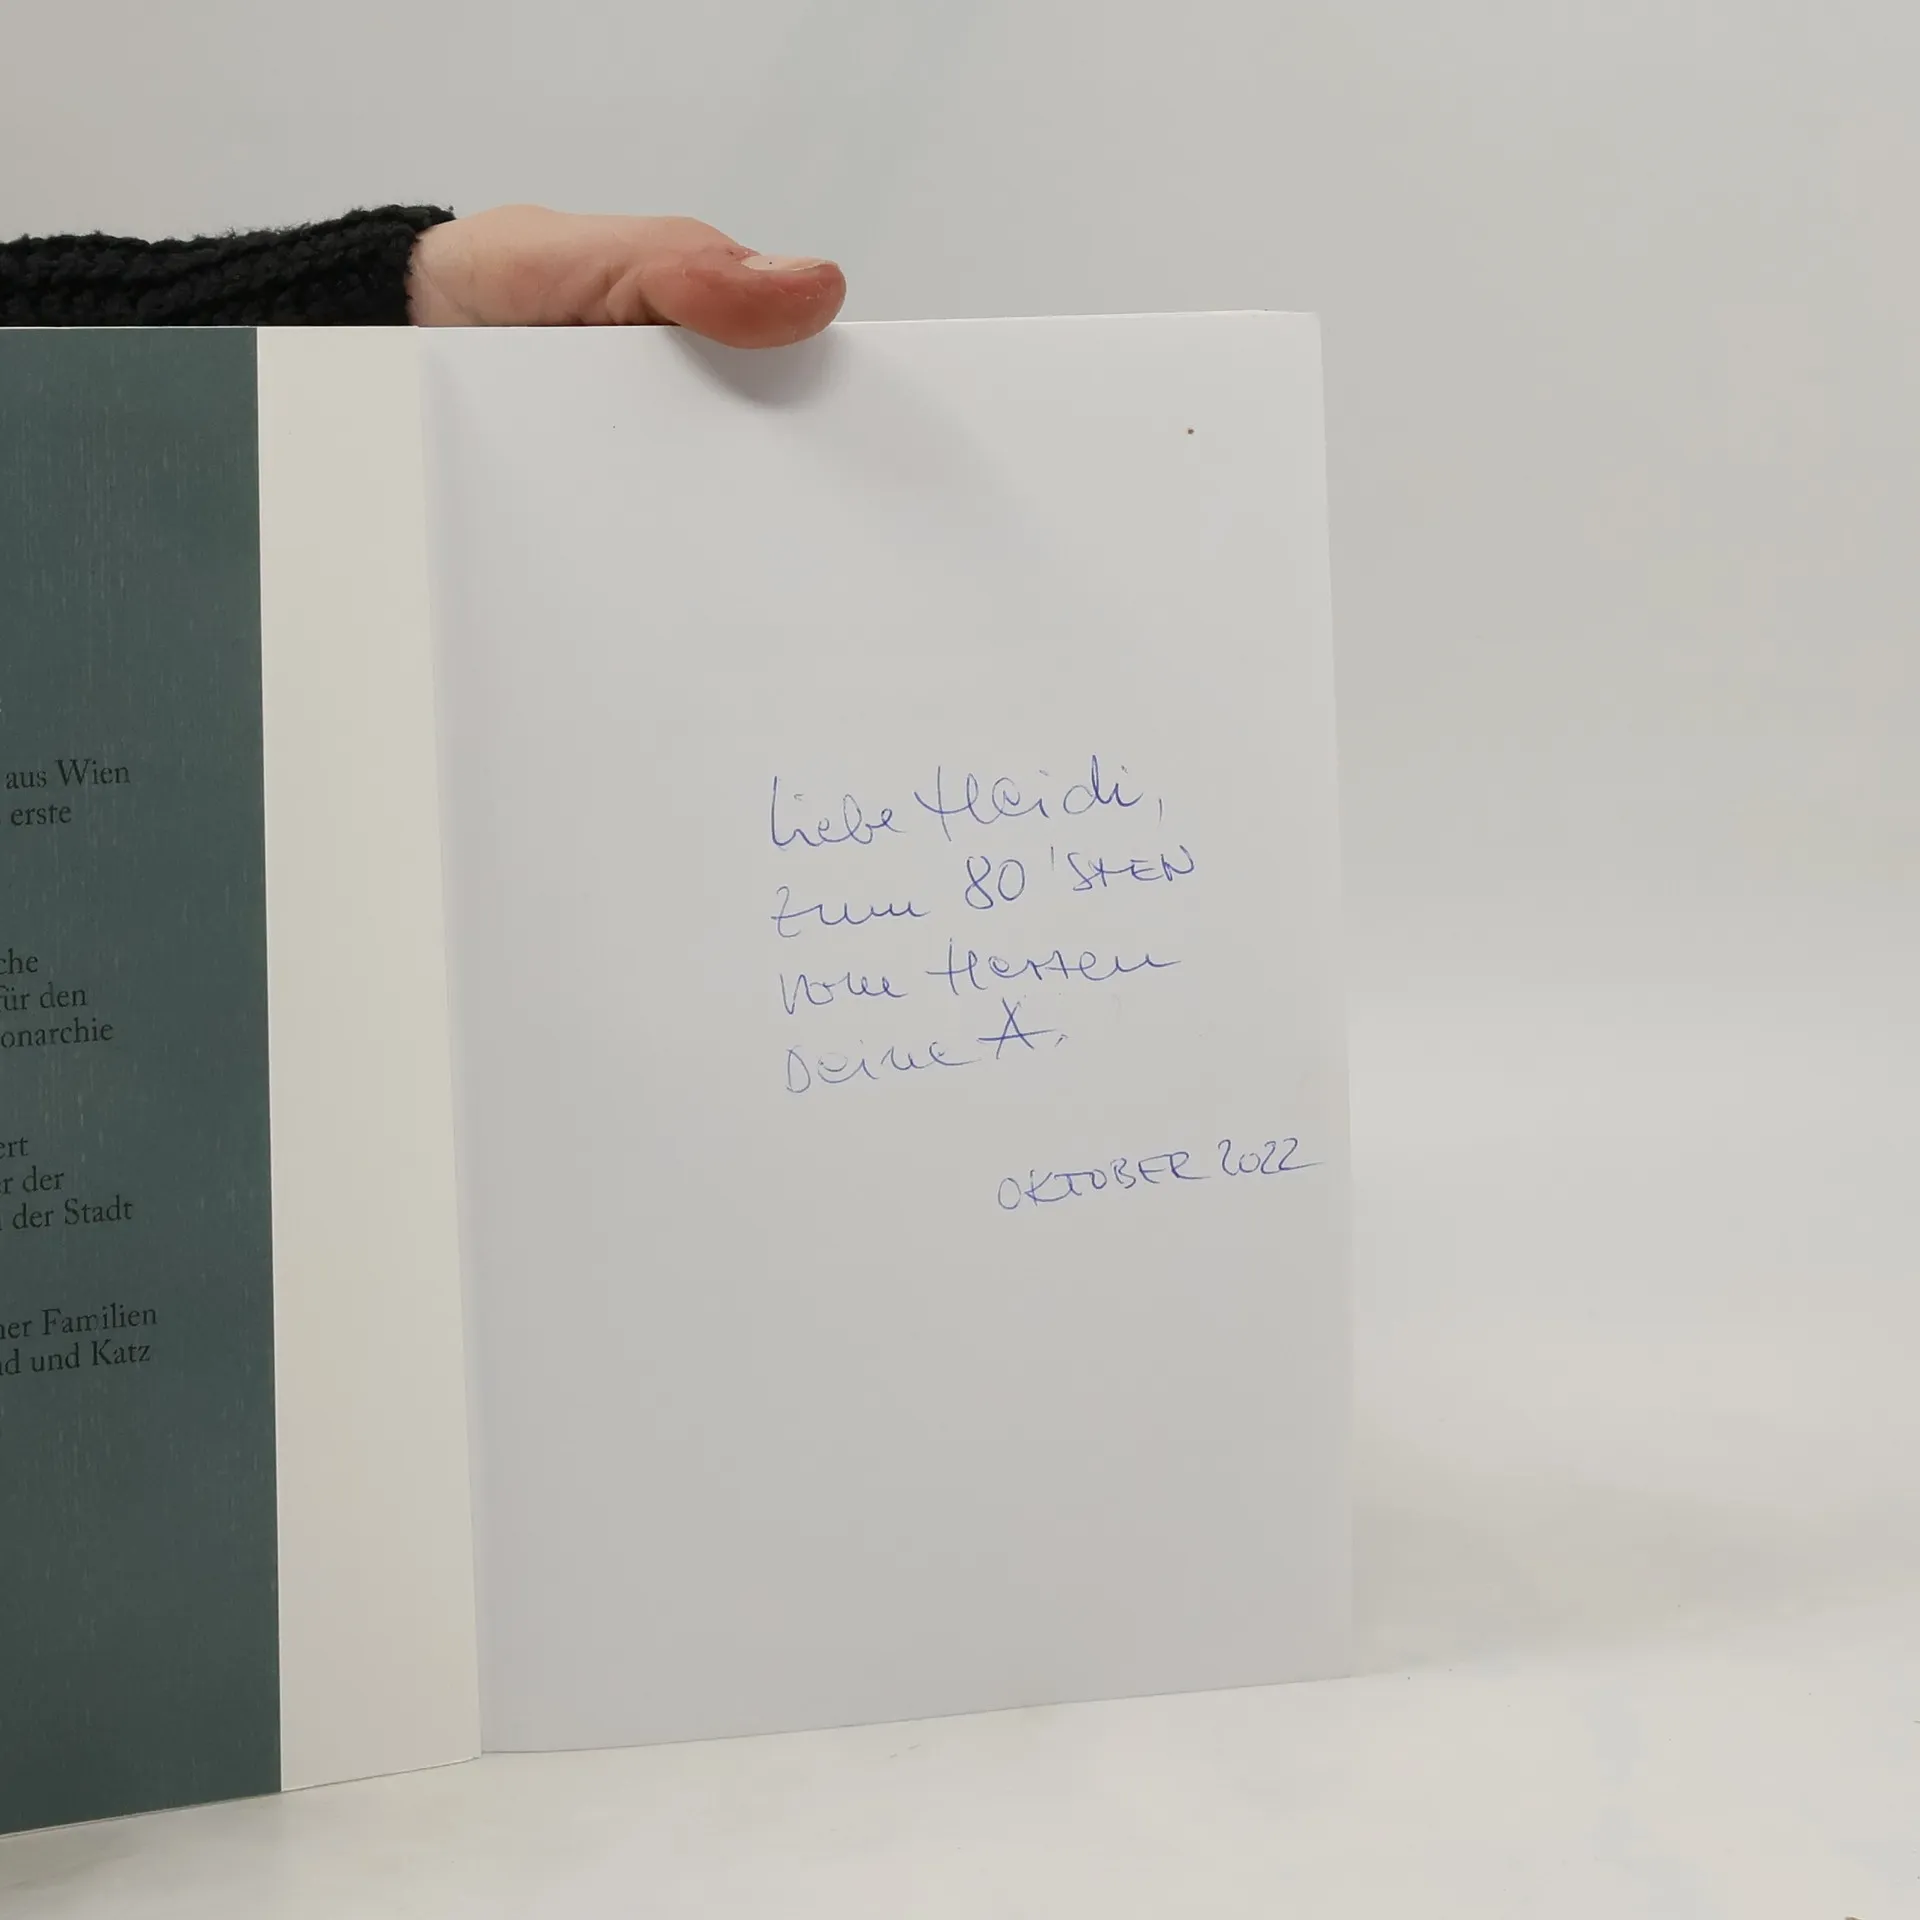 aus Wien
erste
che
für den
onarchie
ert
r der
der Stadt
ner Familien
nd und Katz
Liebe Heidi,
zum 80'STEN
vom Herzen
Deine A.
OKTOBER 2022